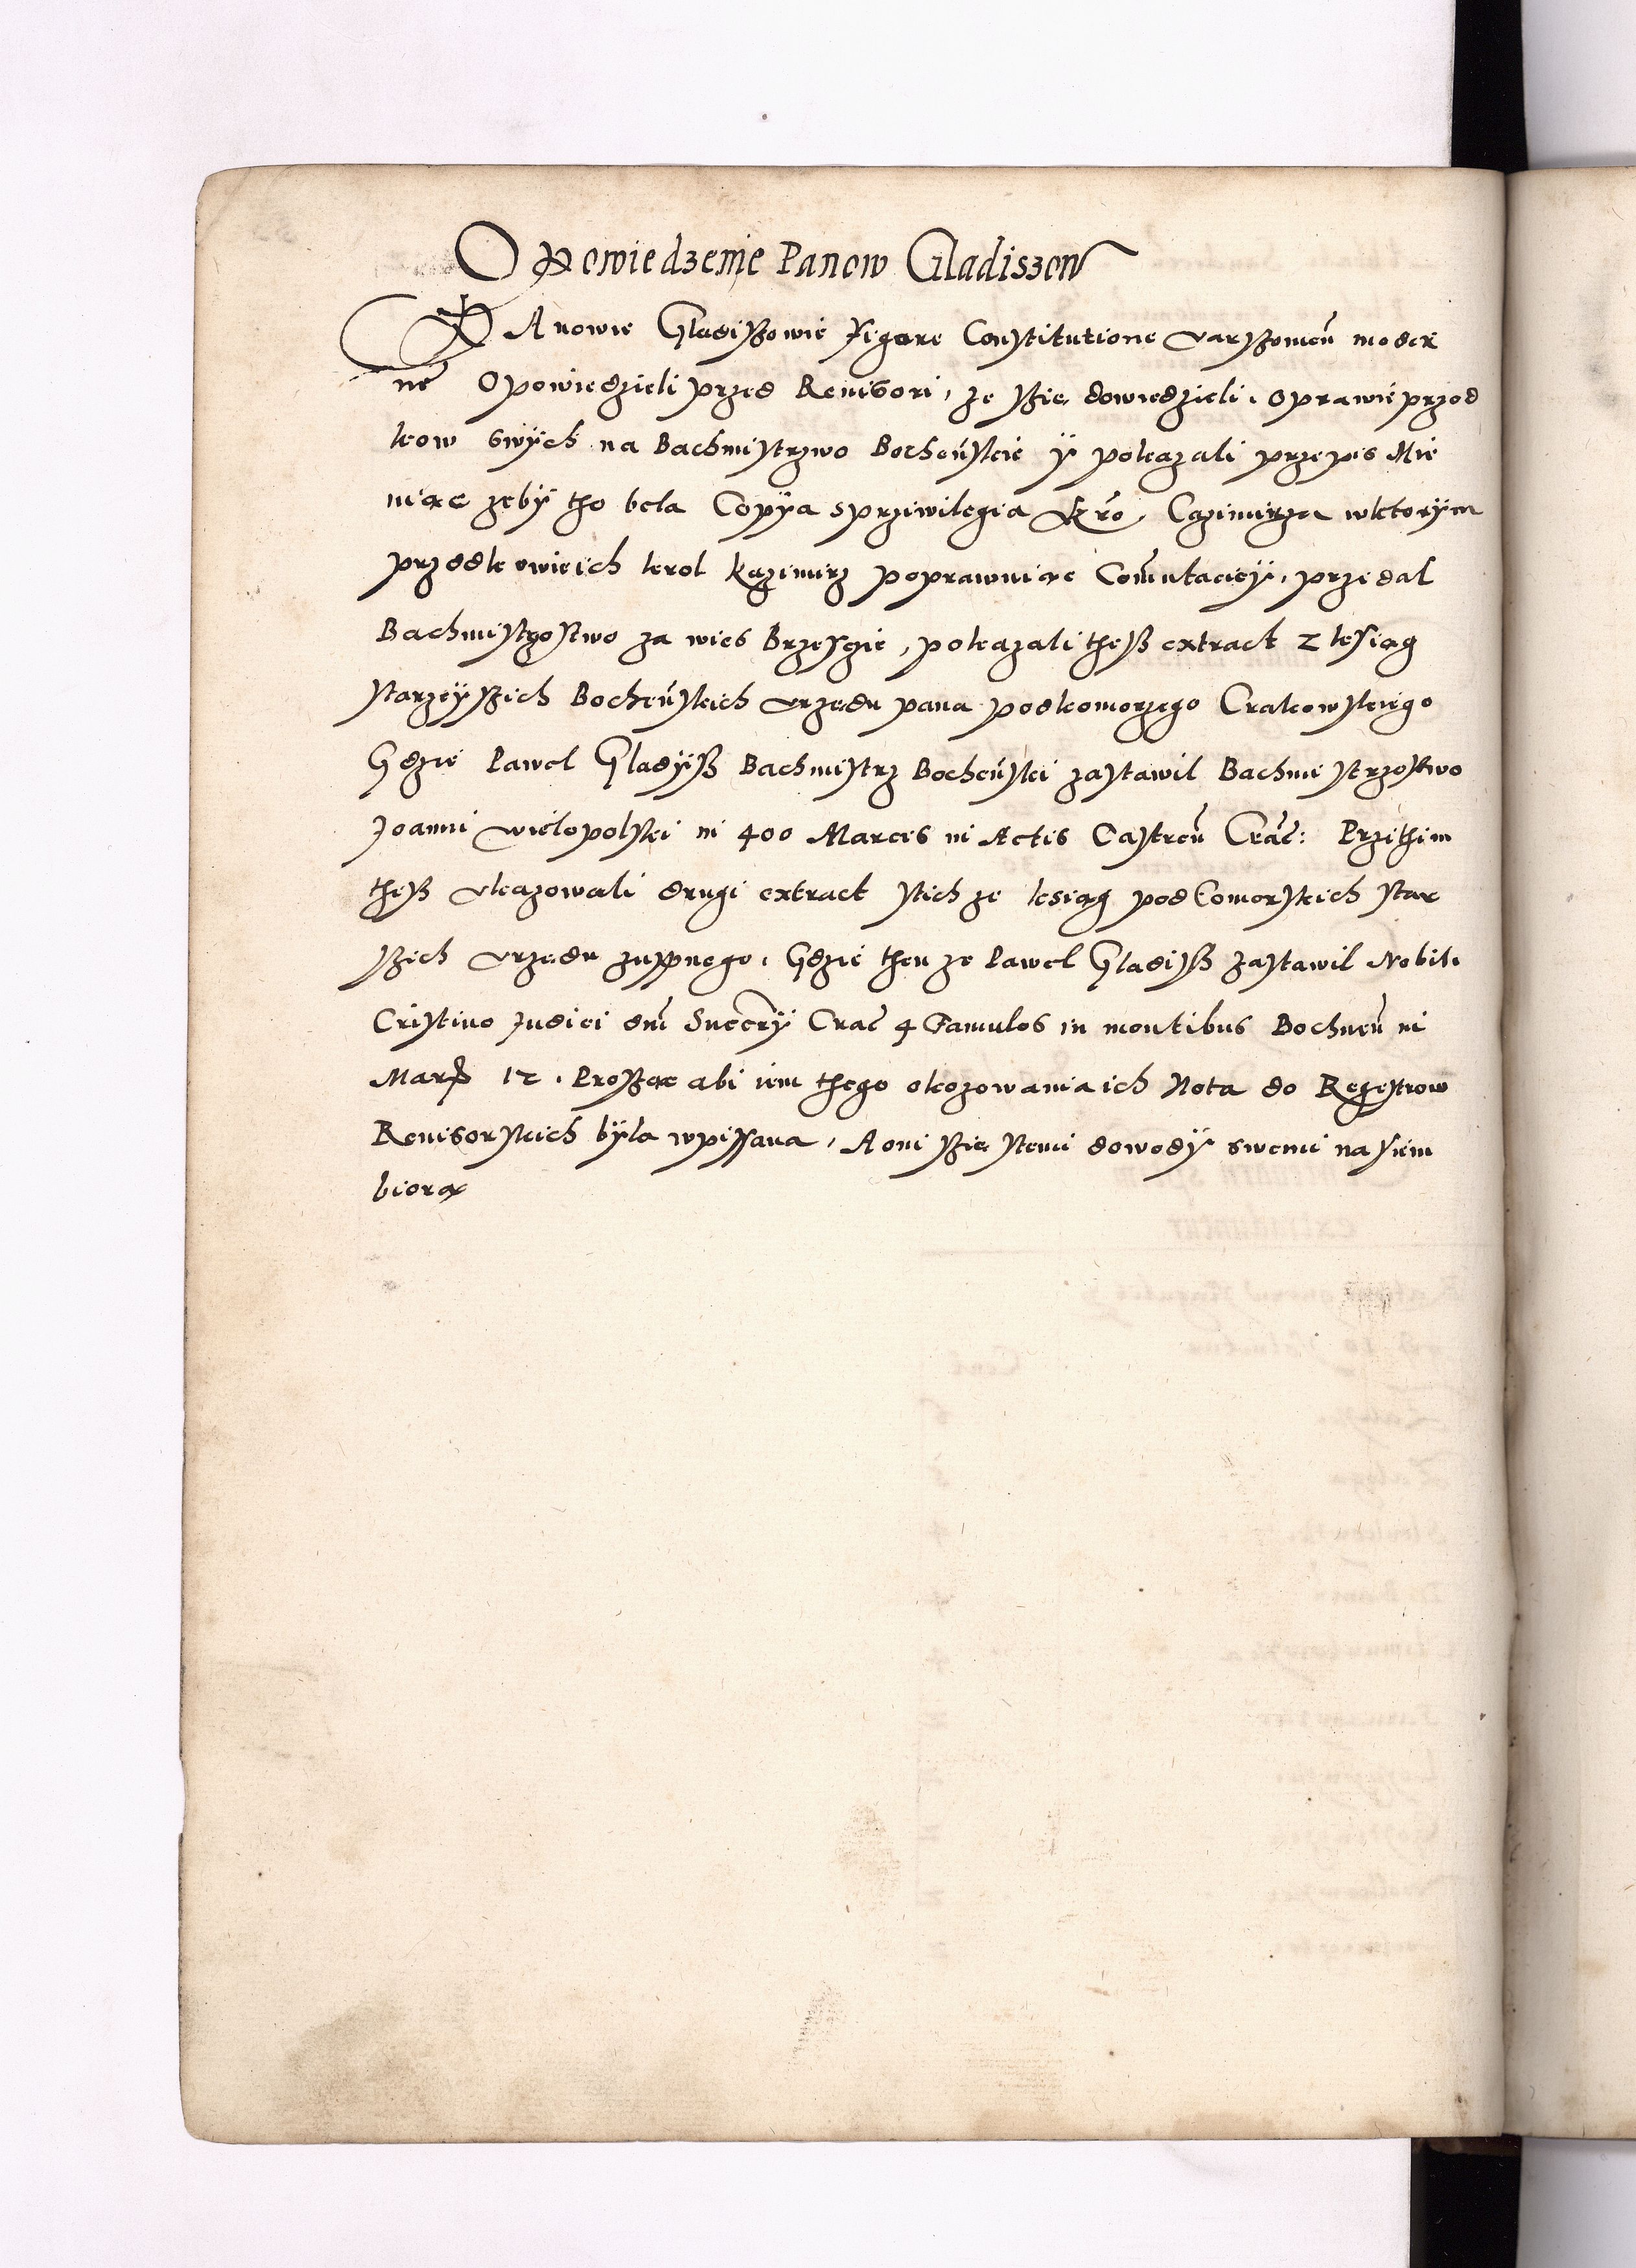 Opowiedzenie Panow Gladiszow
PAnowie Gladißowie vigore Constitutione Varßovień moder
ne Opowiedzieli przed Revisori, ze ßie dowiedzieli, o prawie przod
kow swÿch na Bachmistrzwo Bocheńskie ÿ pokazali przepis Mie
niąc zebÿ tho bela Copÿa s prziwilegia Kro. Cazimirza w ktorÿm
przodkowie ich krol Kazimirz poprawuiąc Comutacieÿ, przedal
Bachmistrzostwo za wies Brzeszie, pokazali theß extract z ksiąg
starzeÿßich Bocheńskich urzędu pana podkomorzego Crakowskiego
Gdzie Pawel Gladÿß Bachmistrz Bocheński zastawil Bachmistrzostwo
Joanni Wielopolski in 400 Marcis in Actis Castreń Crać: Przithim
theß ukazowali drugi extract stich ze ksiąg podComorskich star
ßich urzędu zuppnego, Gdzie then ze Pawel Gladiß zastawil Nobili
Cristino Judici dni Succrÿ Crać 4 Famulos in montibus Bochneń in
Mar 12. Proßąc abi iem thego okozowania ich Nota do Regestrow
Revisorskich bÿla wpissana, A oni ßie stemi dowodÿ swemi na siem
biorą